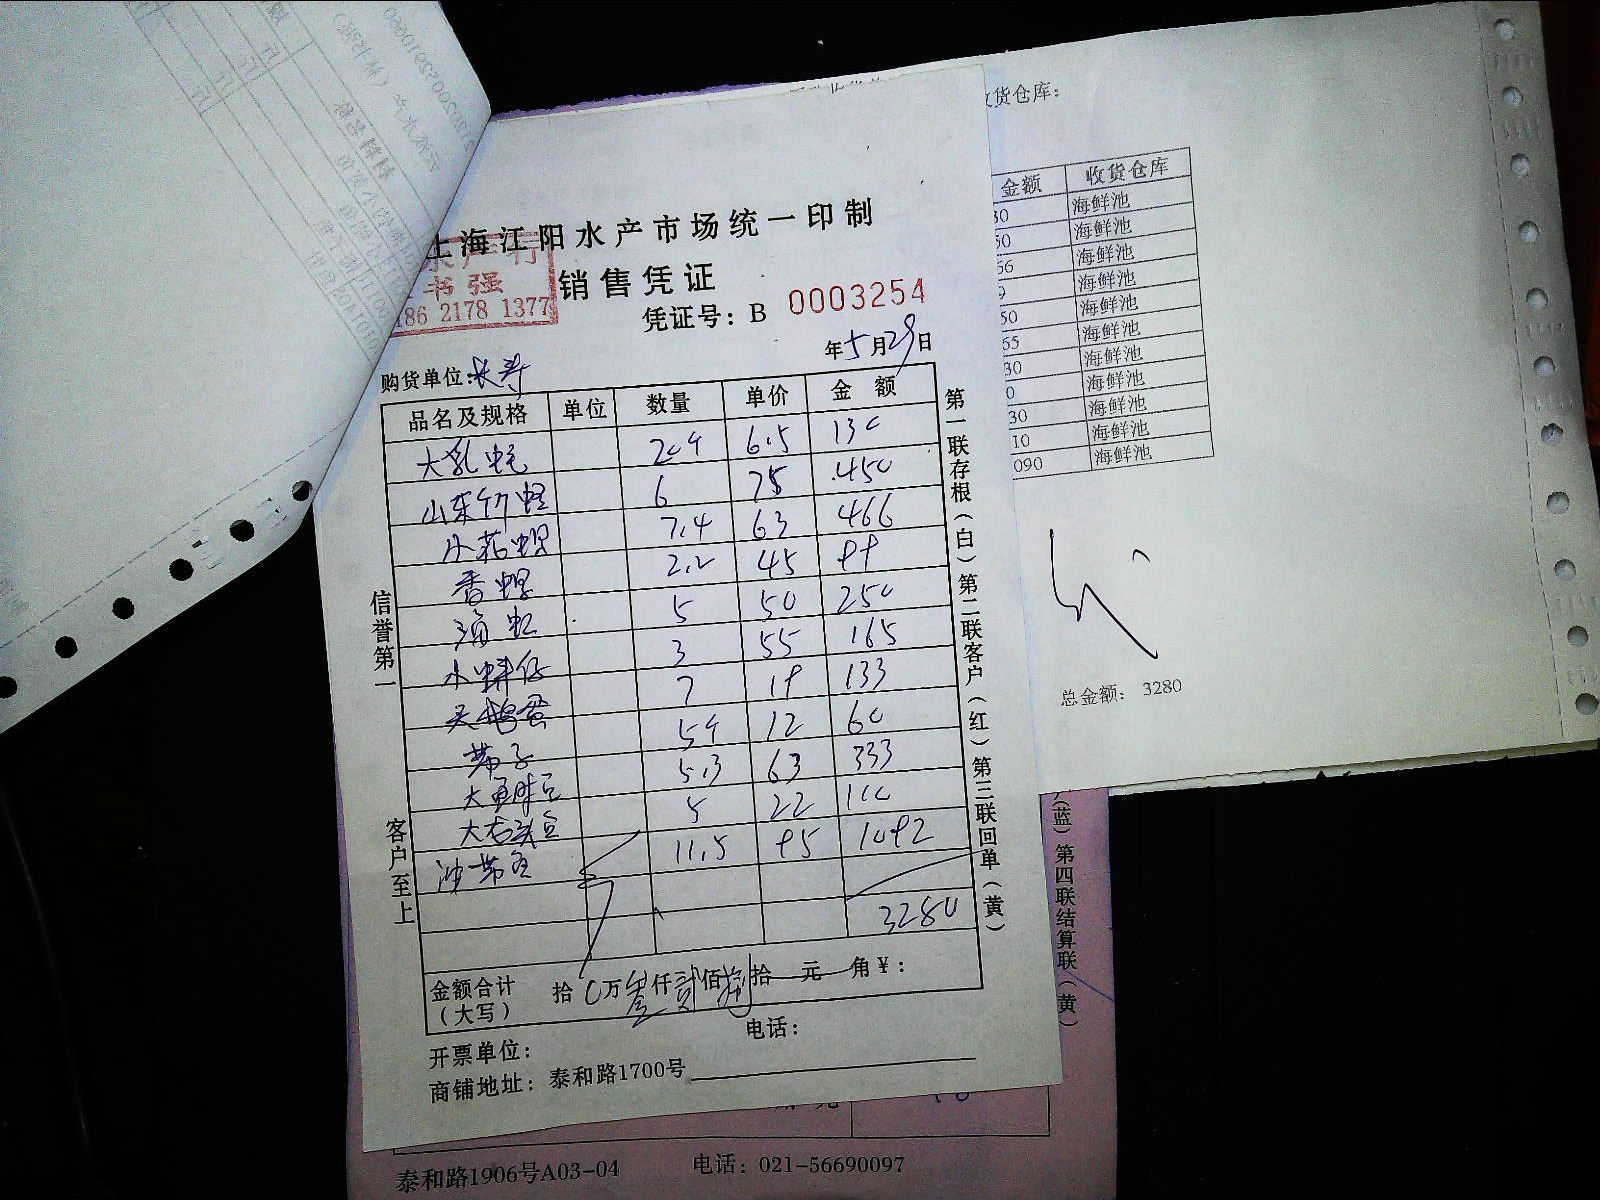 上海江阳水产市场统一印制
水产行
书强
186 2178 1377
销售凭证
凭证号：B 0003254
年5月29日
购货单位：长寿
品名及规格 单位 数量 单价 金额
大乳蚝 204 6.5 130
山东竹蛏 6 75 450
小花螺 7.4 63 466
香螺 2.2 45 99
滑虹 5 50 250
水蚌仔 3 55 165
天鹅蛋 7 19 133
带子 54 12 60
大鱼 5.3 63 333
大石头 5 22 110
沙带鱼 11.5 95 1092
3280
金额合计（大写） 拾0万叁仟贰佰捌拾元角￥：
开票单位： 电话：
商铺地址：泰和路1700号
信誉第一
客户至上
第一联存根（白）第二联客户（红）第三联回单（黄）
收货仓库：
金额 收货仓库
30 海鲜池
50 海鲜池
66 海鲜池
9 海鲜池
50 海鲜池
65 海鲜池
30 海鲜池
0 海鲜池
30 海鲜池
10 海鲜池
090 海鲜池
总金额： 3280
（蓝）第四联结算联（黄）
泰和路1906号A03-04 电话：021-56690097